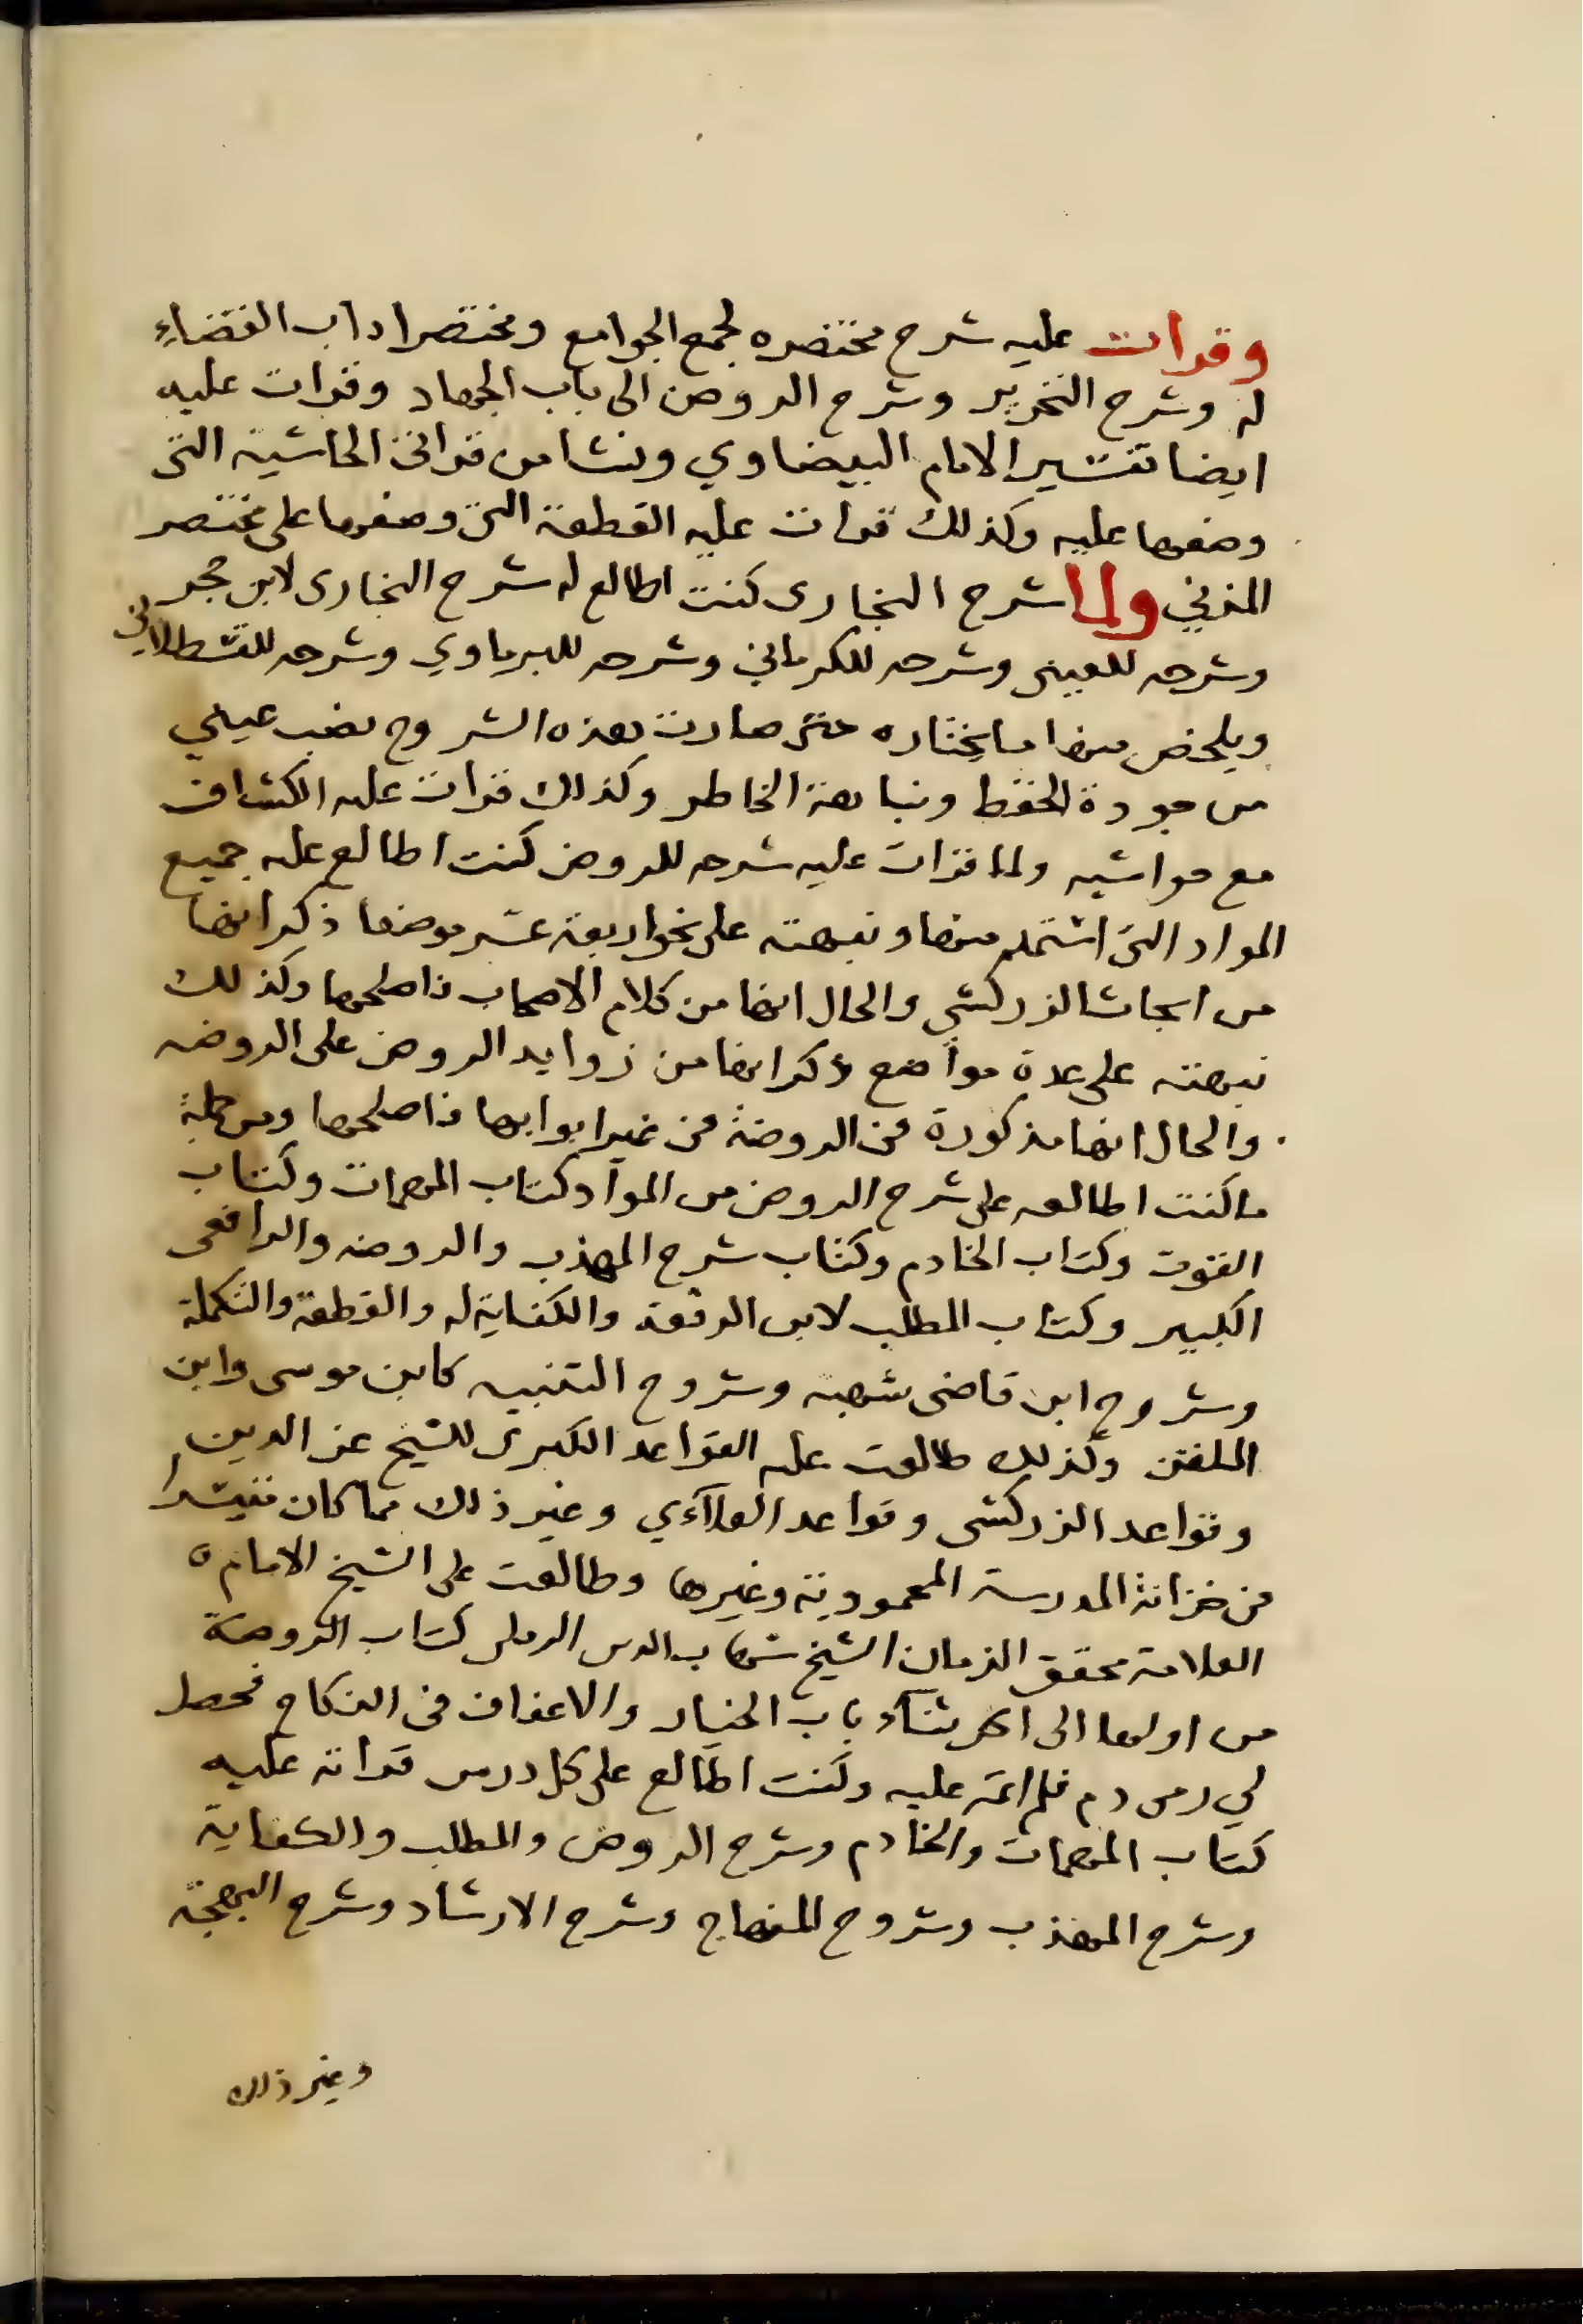 وقرات عليه شرح مختصره لجمع الجوامع ومختصر اداب القضاء
له وشرح التحرير وشرح الروض الى باب الجهاد وقرات عليه
ايضا تفسير الامام البيضاوي ونشا من قراتى الحاشية التى
وضعها عليه وكذلك قرات عليه القطعة التى وضعها على مختصر
المزني ولما شرح البخارى كنت اطالع له شرح البخارى لابن حجر
وشرحه للعينى وشرحه للكرماني وشرحه للبرماوي وشرحه للقسطلاني
ويلخص منها ما يختاره حتى صارت هذه الشروح نصب عيني
من جودة الحفظ ونباهة الخاطر وكذلك قرات عليه الكشاف
مع حواشيه ولما قرات عليه شرحه للروض كنت اطالع عليه جميع
المواد التى استمد منها ونبهته على نحو اربعة عشر موضعا ذكر انها
من ابحاث الزركشي والحال انها من كلام الاصحاب فاصلحها وكذلك
نبهته على عدة مواضع ذكر انها من زوايد الروض على الروضه
والحال انها مذكورة فى الروضة فى غير ابوابها فاصلحها ومن جملة
ما كنت اطالعه على شرح الروض من المواد كتاب المهمات وكتاب
القوت وكتاب الخادم وكتاب شرح المهذب والروضه والرافعى
الكبير وكتاب المطلب لابن الرفعة والكفاية له والقطعة والتكملة
وشروح ابن قاضى شهبة وشروح التنبيه كابن يونس وابن
الملقن وكذلك طالعت عليه القواعد الكبرى للشيخ عز الدين
وقواعد الزركشى وقواعد العلاءي وغير ذلك مما كان متيسرا
فى خزانة المدرسة المحمودية وغيرها وطالعت على الشيخ الامام
العلامة محقق الزمان الشيخ شهاب الدين الرملى كتاب الروضة
من اولها الى اثناء باب الخيار والاعفاف فى النكاح فحصل
لي رمى دم فلم اتمه عليه وكنت اطالع على كل درس قراته عليه
كتاب المهمات والخادم وشرح الروض والمطلب والكفاية
وشرح المهذب وشروح المنهاج وشرح الارشاد وشرح البهجة
وغير ذلك